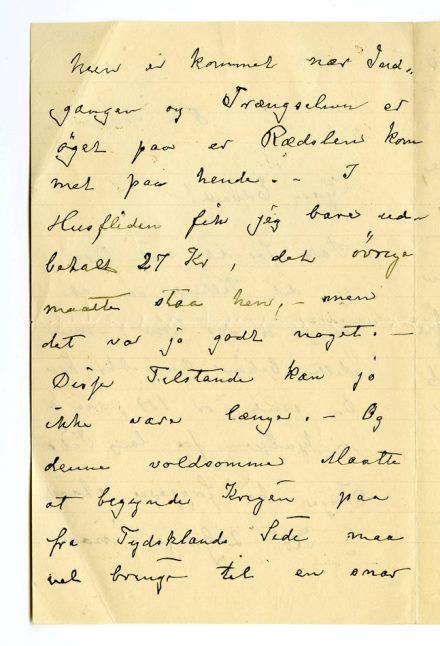 hun er kommet nær Ind-
gangen og Trængselen er
øget paa er Rædslen kom
met paa hende. - I
Husfliden fik jeg bare ud-
betalt 27 Kr, det övrige
maatte staa hen, - men
det var jo godt noget. -
Disse Tilstande kan jo
ikke vare længe. - Og
denne voldsomme Maatte
at begynde Krigen paa
fra Tydsklands Side maa
vel bringe til en snar